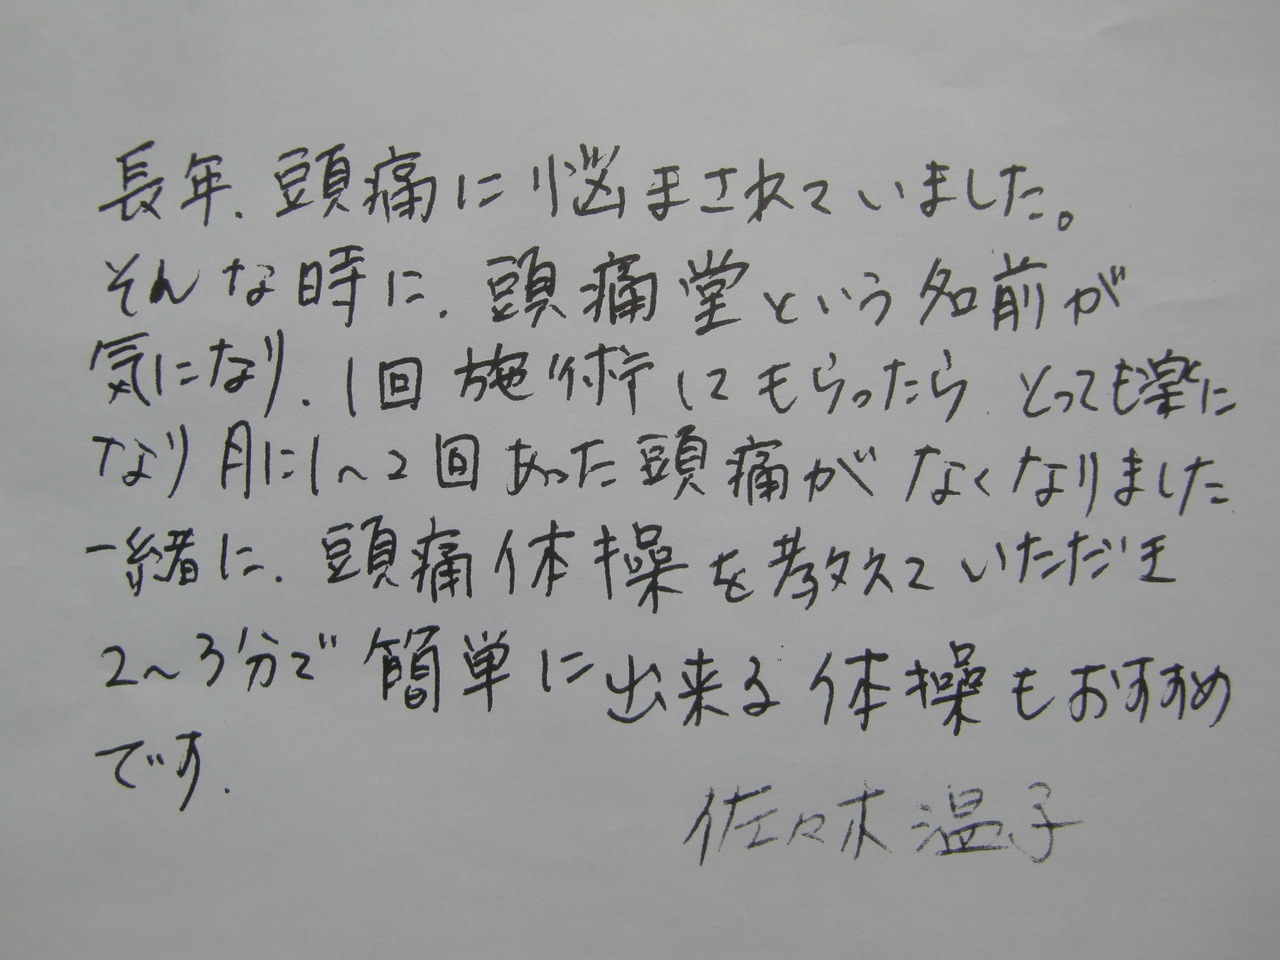 長年、頭痛に悩まされていました。
そんな時に、頭痛堂という名前が
気になり、1回施術してもらったら とっても楽に
なり月に1〜2回あった頭痛がなくなりました
一緒に、頭痛体操を教えていただき
2〜3分で簡単に出来る体操もおすすめ
です.
佐々木温子